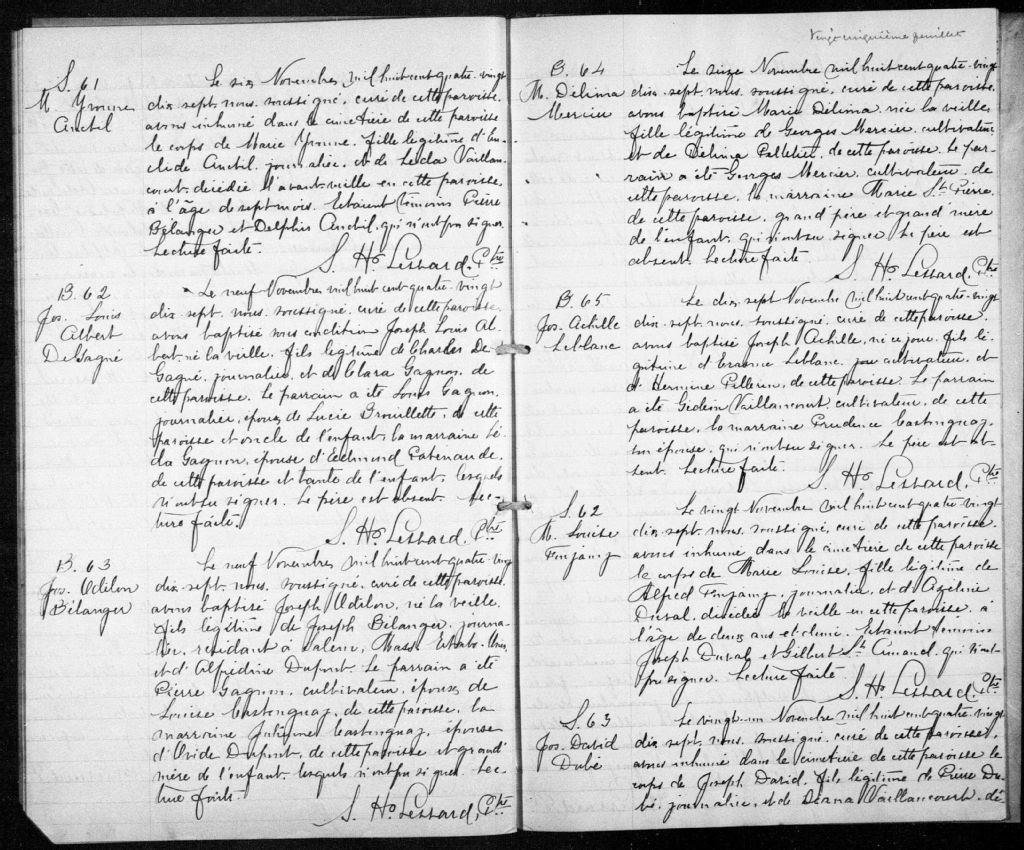 S. 61
M. Yvonne
Anctil
Le six Novembre mil huit cent quatre-vingt
dix-sept, nous, soussigné, curé de cette paroisse,
avons inhumé dans le cimetière de cette paroisse
le corps de Marie Yvonne, fille légitime d'Eu-
clide Anctil, journalier, et de Léda Vaillan-
court, décédée l'avant-veille en cette paroisse,
à l'âge de sept mois. Etaient témoins Pierre
Bélanger et Delphis Anctil, qui n'ont pu signer.
Lecture faite.
S. Ho. Lessard, Ptre
B. 62
Jos. Louis
Albert
DeGagné
Le neuf Novembre mil huit cent quatre-vingt
dix-sept, nous, soussigné, curé de cette paroisse,
avons baptisé sous condition Joseph Louis Al-
bert, né la veille, fils légitime de Charles De
Gagné, journalier, et de Clara Gagnon, de
cette paroisse. Le parrain a été Louis Gagnon,
journalier, époux de Lucie Brouillette, de cette
paroisse et oncle de l'enfant, la marraine Lé-
da Gagnon, épouse d'Edmond Patenaude,
de cette paroisse et tante de l'enfant, lesquels
n'ont su signer. Le père est absent. Lec-
ture faite.
S. Ho. Lessard, Ptre
B. 63
Jos. Odilon
Bélanger
Le neuf Novembre mil huit cent quatre-vingt
dix-sept, nous, soussigné, curé de cette paroisse,
avons baptisé Joseph Odilon, né la veille,
fils légitime de Joseph Bélanger, journa-
lier, résidant à Salem, Mass. Etats-Unis,
et d'Alphédine Dupont. Le parrain a été
Pierre Gagnon, cultivateur, époux de
Louise Castonguay, de cette paroisse, la
marraine Julienne Castonguay, épouse
d'Ovide Dupont, de cette paroisse et grand'
mère de l'enfant, lesquels n'ont pu signer. Lec-
ture faite.
S. Ho. Lessard, Ptre
Vingt-cinquième feuillet
B. 64
M. Délima
Mercier
Le seize Novembre mil huit cent quatre-vingt
dix-sept, nous, soussigné, curé de cette paroisse,
avons baptisé Marie Délima, née la veille,
fille légitime de Georges Mercier, cultivateur,
et de Délima Pelletier, de cette paroisse. Le par-
rain a été Georges Mercier, cultivateur, de
cette paroisse, la marraine Marie St. Pierre,
de cette paroisse, grand père et grand'mère
de l'enfant, qui n'ont su signer. Le père est
absent. Lecture faite.
S. Ho. Lessard, Ptre
B. 65
Jos. Achille
Leblanc
Le dix-sept Novembre mil huit cent quatre-vingt
dix-sept, nous, soussigné, curé de cette paroisse,
avons baptisé Joseph Achille, né ce jour, fils lé-
gitime d'Erasme Leblanc, cultivateur, et
d'Hermine Pellerin, de cette paroisse. Le parrain
a été Gédéon Vaillancourt, cultivateur, de cette
paroisse, la marraine Prudence Castonguay,
son épouse, qui n'ont su signer. Le père est ab-
sent. Lecture faite.
S. Ho. Lessard, Ptre
S. 62
M. Louise
Le vingt Novembre mil huit cent quatre-vingt
dix-sept, nous, soussigné, curé de cette paroisse,
avons inhumé dans le cimetière de cette paroisse
le corps de Marie Louise, fille légitime de
Alfred journalier, et d'Azeline
Duval, décédée la veille en cette paroisse, à
l'âge de deux ans et demi. Etaient témoins
Joseph Duval et Gilbert St. Amand, qui n'ont
pu signer. Lecture faite.
S. Ho. Lessard, Ptre
S. 63
Jos. David
Dubé
Le vingt-un Novembre mil huit cent quatre-vingt
dix-sept, nous, soussigné, curé de cette paroisse,
avons inhumé dans le cimetière de cette paroisse le
corps de Joseph David, fils légitime de Pierre Du-
bé, journalier, et de Déana Vaillancourt, dé-